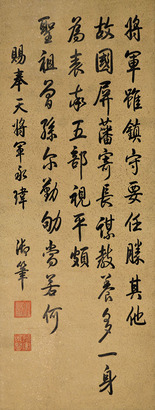 將軍雖鎮守要任勝其他
故國屏藩寄長謀教養多一身
為表率五部視平頗
聖祖曾孫爾勤劬當若何
賜奉天將軍永瑋 御筆